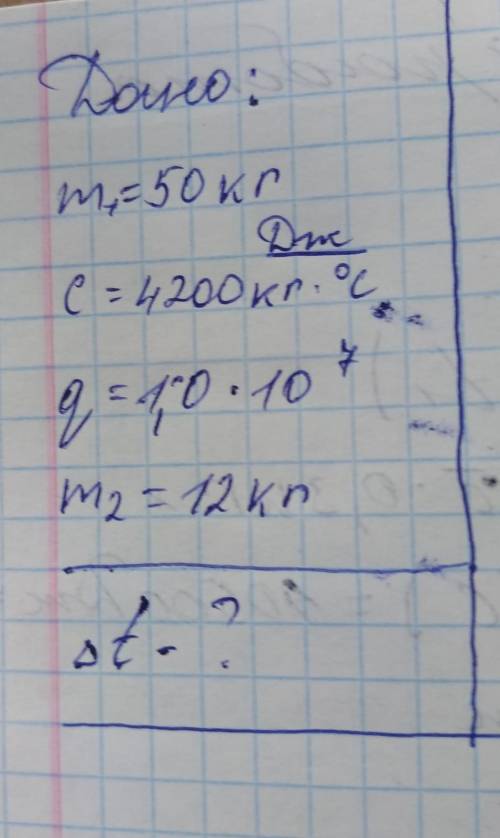 Дано:
m₁=50 кг
Дж
c = 4200 кг·°C
q = 1,0 · 10⁷
m₂ = 12 кг
Δt - ?